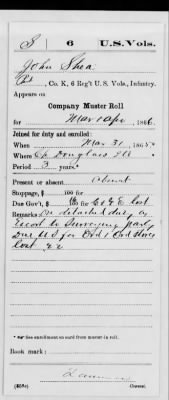 S | 6 | U.S. Vols.
John Shea
Pvt, Co. K, 6 Reg't U. S. Vols., Infantry.
Appears on
Company Muster Roll
for Mar & Apr, 1866.
Joined for duty and enrolled:
When Mar 31, 1865*
Where Cp Douglass Ill
Period 3 years*
Present or absent Absent
Stoppage, $ 100 for
Due Gov't, $ 100 for C & G E lost
Remarks: On detached duty as
Escort to Surveying party
Due U S for Ord & Ord stores
lost
*See enrollment on card from muster-in roll.
Book mark:
(858c)
Copyist.